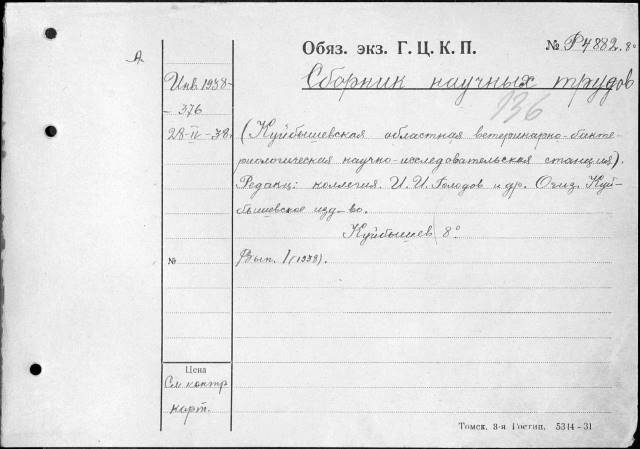 А
Обяз. экз. Г. Ц. К. П. № Р4882.8°
Инв. 1938 Сборник научных трудов
- 376 136
28-II-38. (Куйбышевская областная ветеринарно-бакте-
риологическая научно-исследовательская станция).
Редакц: коллегия. И. И. Голодов и др. Огиз. Куй-
бышевское изд-во.
Куйбышев 8°
№ Вып. 1 (1938).
Цена
См. контр
карт.
Томск. 3-я Гостип. 5314-31